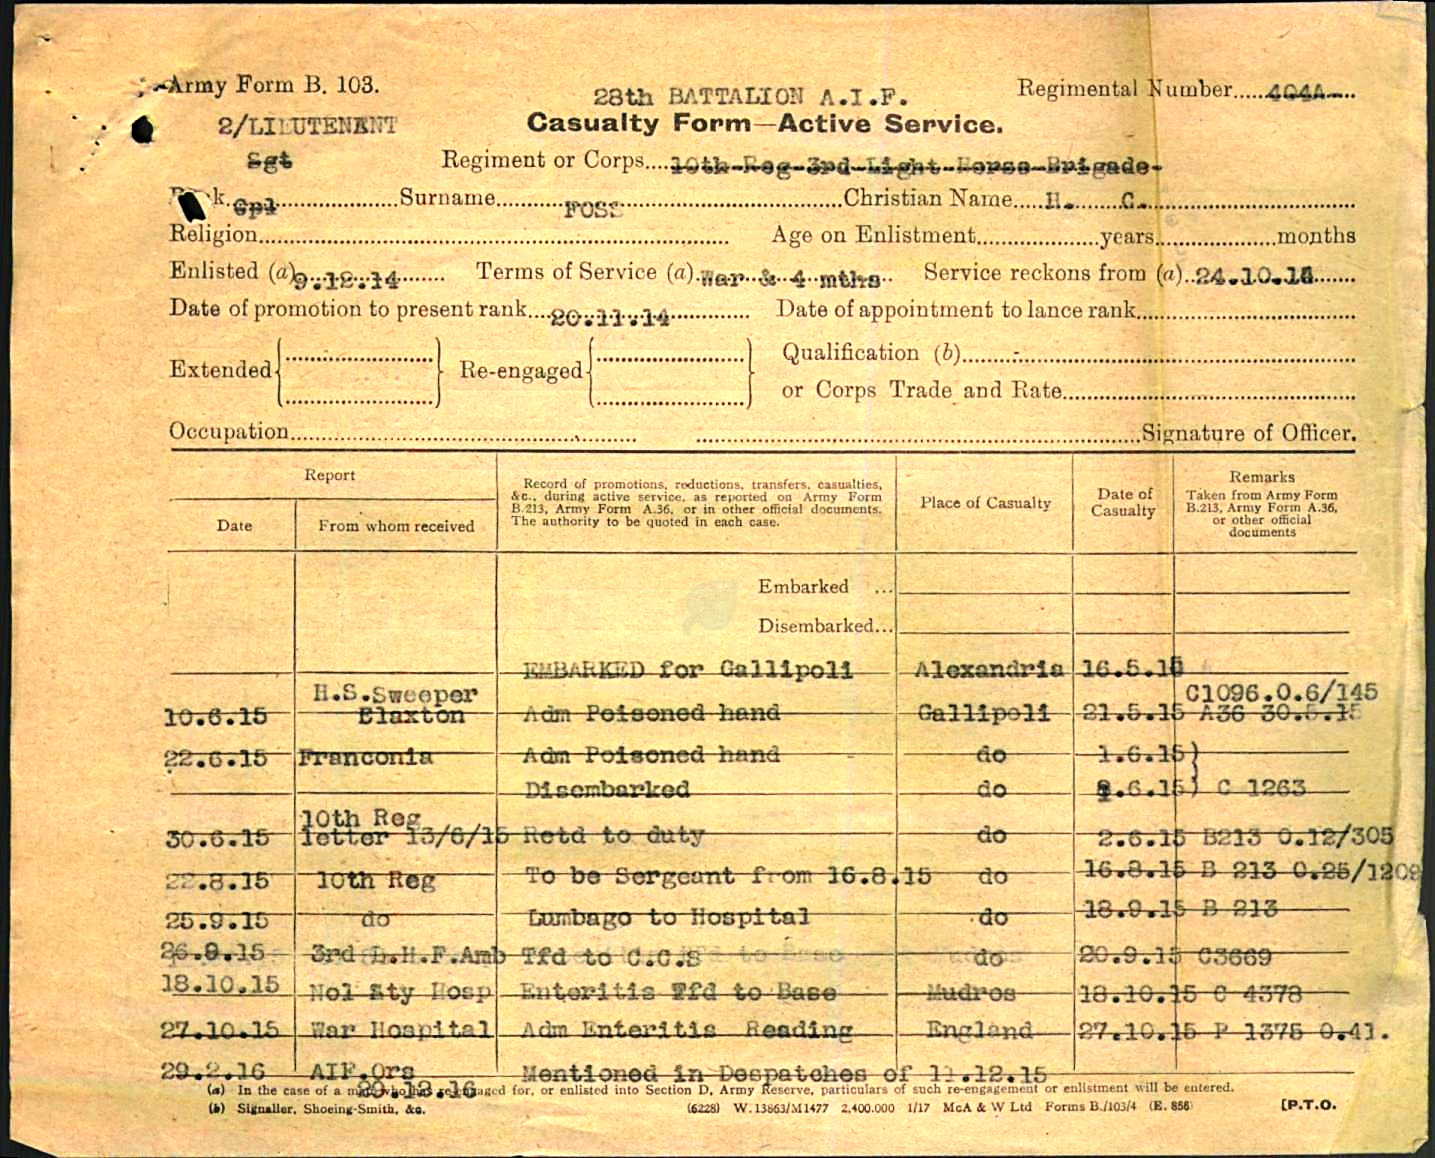 Army Form B. 103.
28th BATTALION A.I.F.
Regimental Number 404A
2/LIEUTENANT
Casualty Form—Active Service.
Sgt
Regiment or Corps 10th Reg 3rd Light Horse Brigade
Cpl Surname FOSS Christian Name H. C.
Religion Age on Enlistment years months
Enlisted (a) 9.12.14 Terms of Service (a) War & 4 mths Service reckons from (a) 24.10.14
Date of promotion to present rank 20.11.14 Date of appointment to lance rank
Extended Re-engaged Qualification (b)
or Corps Trade and Rate
Occupation Signature of Officer.
Report
Date From whom received
Record of promotions, reductions, transfers, casualties, &c., during active service, as reported on Army Form B.213, Army Form A.36, or in other official documents. The authority to be quoted in each case.
Place of Casualty
Date of Casualty
Remarks
Taken from Army Form B.213, Army Form A.36, or other official documents
Embarked ...
Disembarked...
EMBARKED for Gallipoli Alexandria 16.5.15
H.S.Sweeper C1096.0.6/145
10.6.15 Blaxton Adm Poisoned hand Gallipoli 21.5.15 A36 30.5.15
22.6.15 Franconia Adm Poisoned hand do 1.6.15)
Disembarked do .6.15) C 1263
10th Reg
30.6.15 letter 13/6/15 Retd to duty do 2.6.15 B213 0.12/305
22.8.15 10th Reg To be Sergeant from 16.8.15 do 16.8.15 B 213 0.25/1209
25.9.15 do Lumbago to Hospital do 18.9.15 B 213
26.9.15 3rd L.H.F.Amb Tfd to C.C.S do 20.9.15 C3669
18.10.15 Nol Sty Hosp Enteritis Tfd to Base Mudros 18.10.15 C 4378
27.10.15 War Hospital Adm Enteritis Reading England 27.10.15 P 1375 0.41.
29.2.16 AIF.Ors Mentioned in Despatches of 11.12.15
29.12.16
(a) In the case of a man who has re-engaged for, or enlisted into Section D, Army Reserve, particulars of such re-engagement or enlistment will be entered.
(b) Signaller, Shoeing-Smith, &c. (6228) W.13863/M1477 2,400.000 1/17 McA & W Ltd Forms B./103/4 (E. 856) [P.T.O.